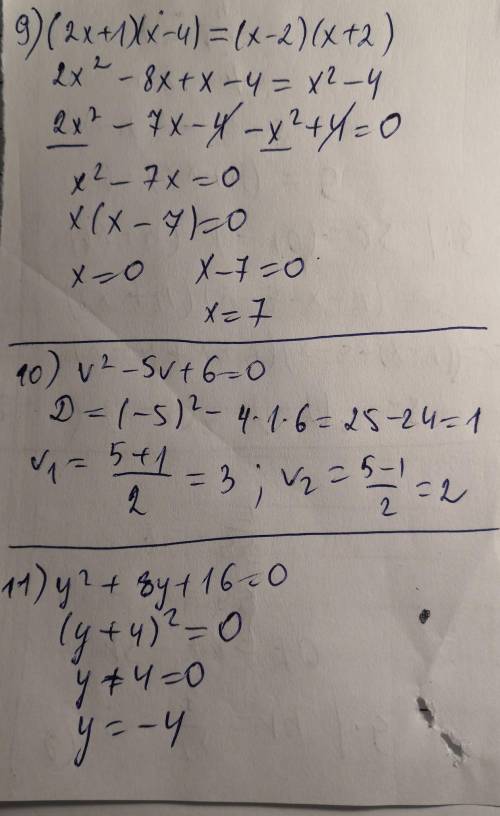 9) (2x+1)(x-4)=(x-2)(x+2)
2x² - 8x + x - 4 = x² - 4
2x² - 7x - 4 - x² + 4 = 0
x² - 7x = 0
x(x - 7) = 0
x = 0 x - 7 = 0
x = 7
10) v² - 5v + 6 = 0
D = (-5)² - 4·1·6 = 25 - 24 = 1
v₁ = (5+1)/2 = 3 ; v₂ = (5-1)/2 = 2
11) y² + 8y + 16 = 0
(y + 4)² = 0
y + 4 = 0
y = -4